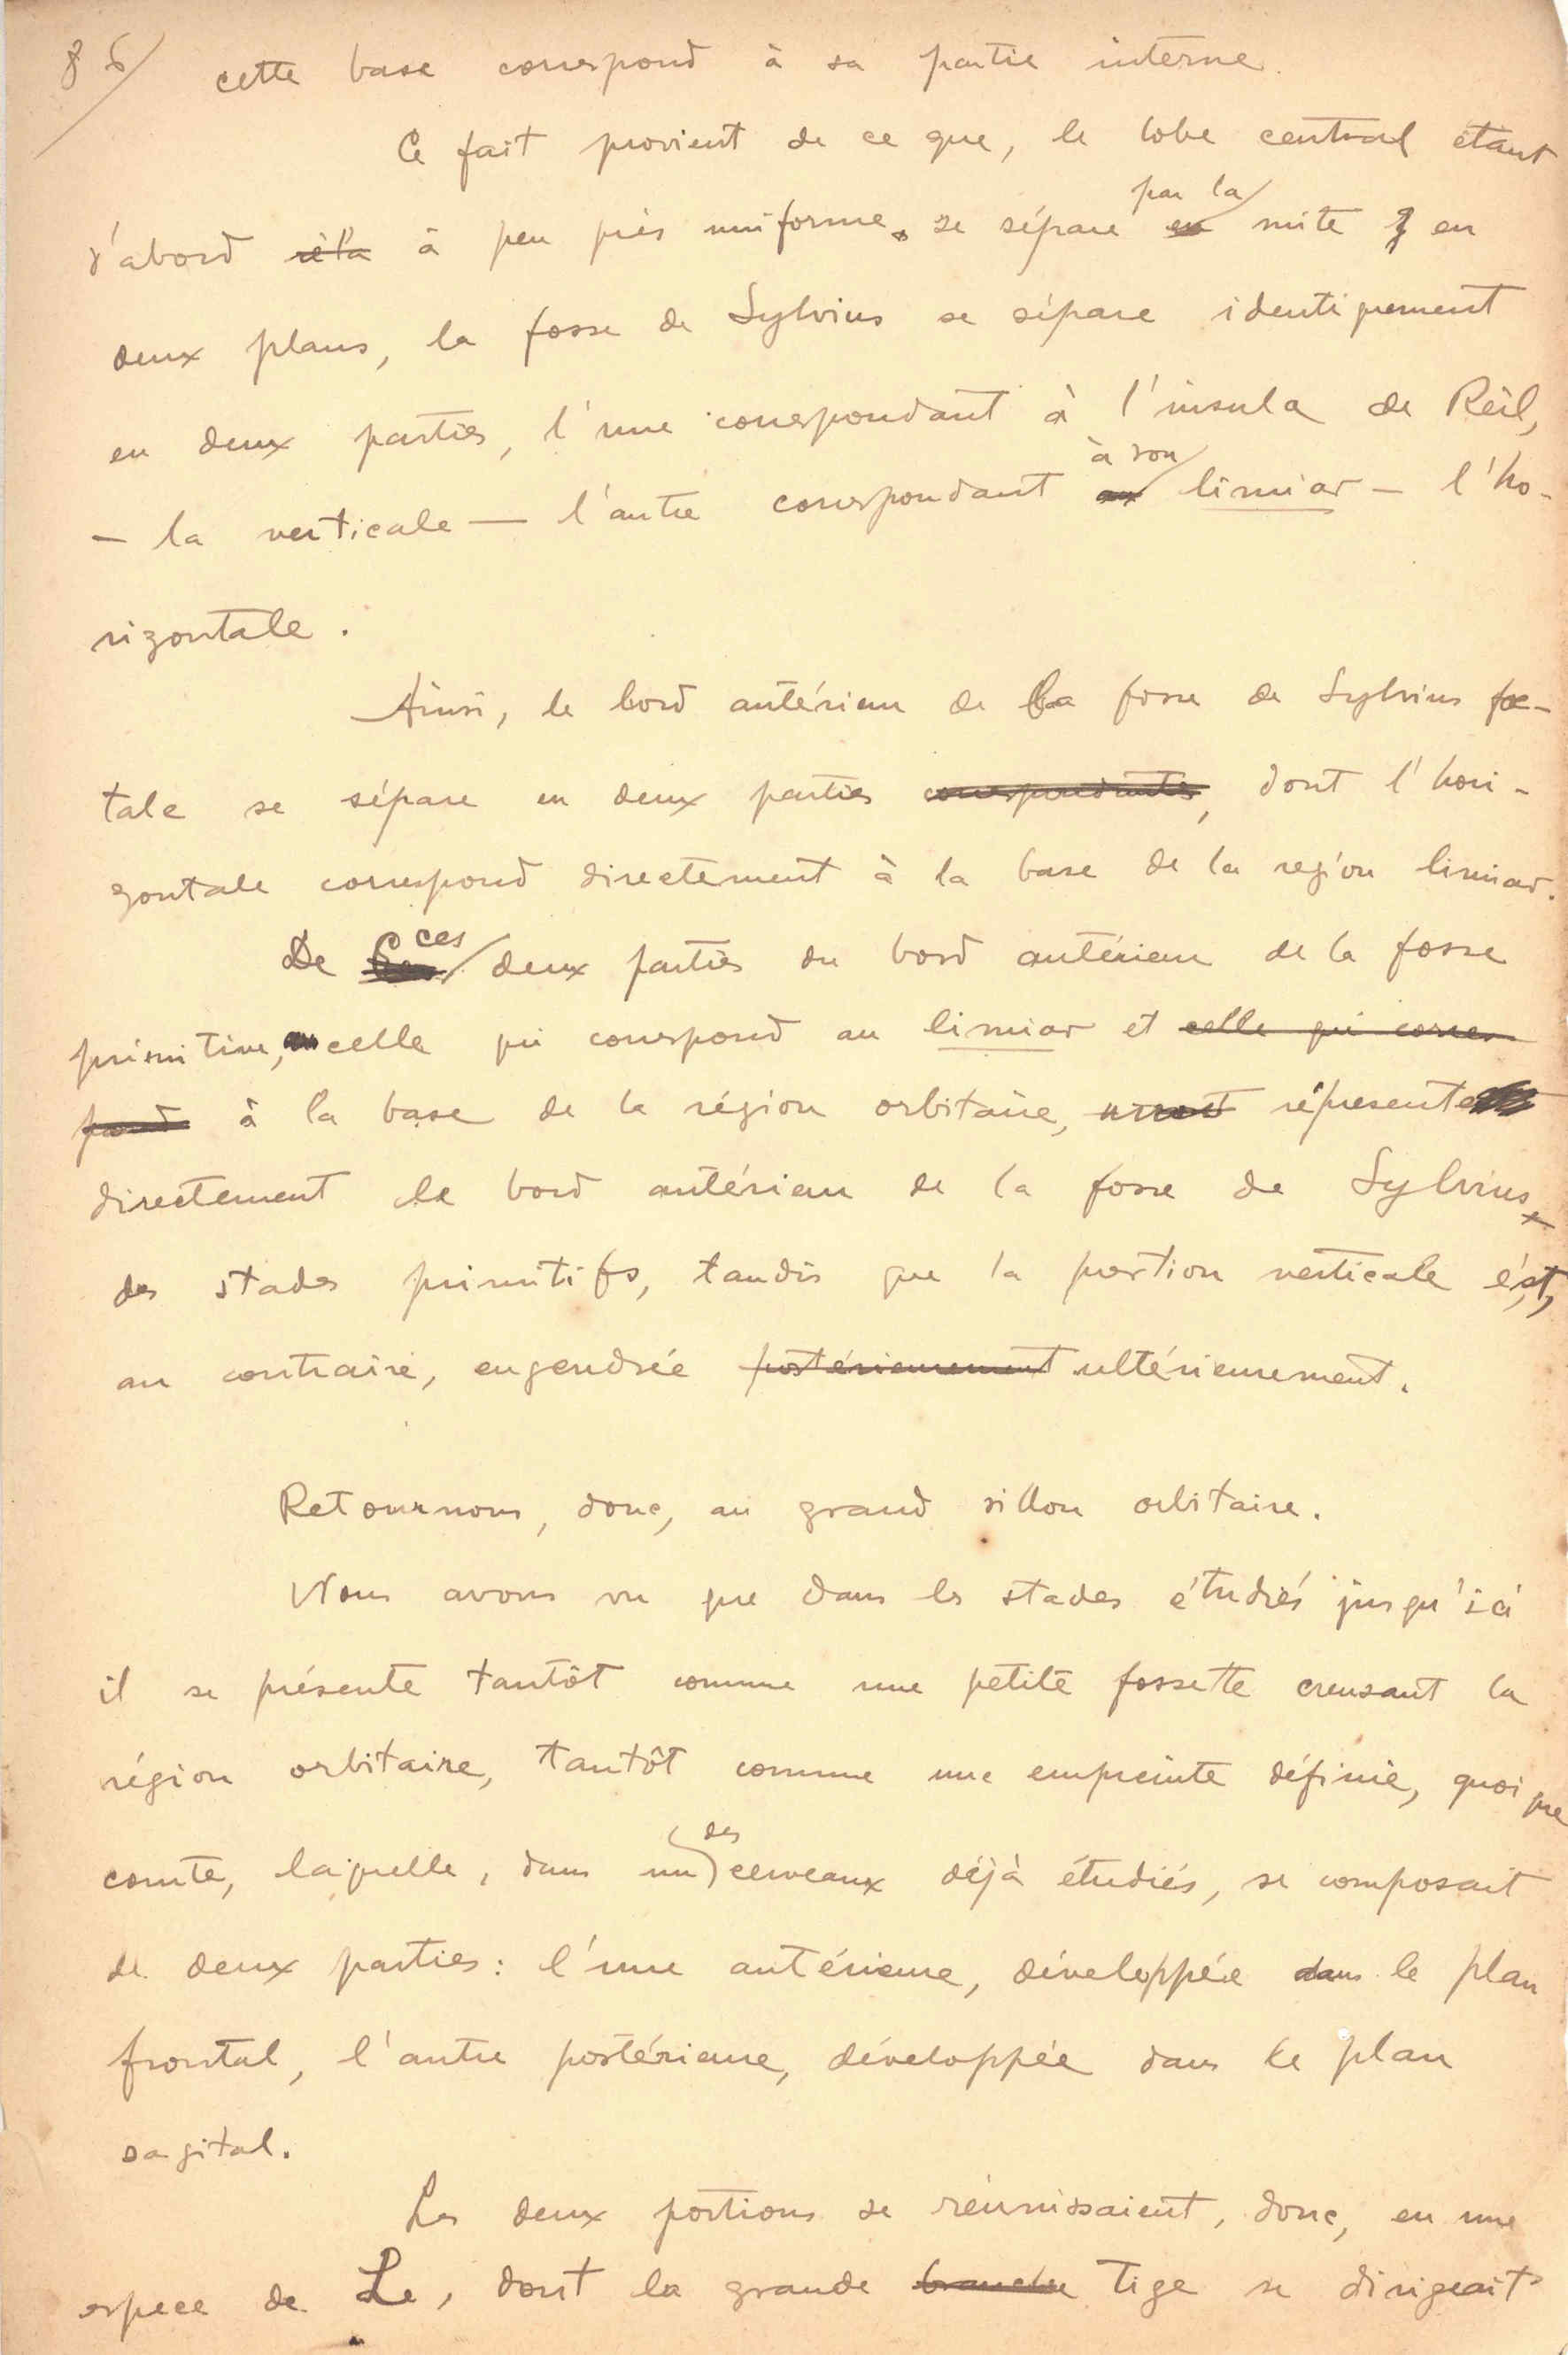 86/ cette base correspond à sa partie interne.
Ce fait provient de ce que, le lobe central étant
d'abord à peu près uniforme, se sépare par la suite en
deux plans, la fosse de Sylvius se sépare identiquement
en deux parties, l'une correspondant à l'insula de Reil,
— la verticale — l'autre correspondant à son limiar — l'ho-
rizontale.
Ainsi, le bord antérieur de la fosse de Sylvius fœ-
tale se sépare en deux parties correspondantes, dont l'hori-
zontale correspond directement à la base de la region limiar.
De ces deux parties du bord antérieur de la fosse
primitive, celle qui correspond au limiar et celle qui corres
pond à la base de la région orbitaire, représente
directement le bord antérieur de la fosse de Sylvius
des stades primitifs, tandis que la portion verticale est,
au contraire, engendrée postérieurement ultérieurement.
Retournons, donc, au grand sillon orbitaire.
Nous avons vu que dans les stades étudiés jusqu'ici
il se présente tantôt comme une petite fossette creusant la
région orbitaire, tantôt comme une empreinte définie, quoique
courte, laquelle, dans un des cerveaux déjà étudiés, se composait
de deux parties: l'une antérieure, développée dans le plan
frontal, l'autre postérieure, développée dans le plan
sagital.
Les deux portions se réunissaient, donc, en une
espece de L, dont la grande branche tige se dirigeait